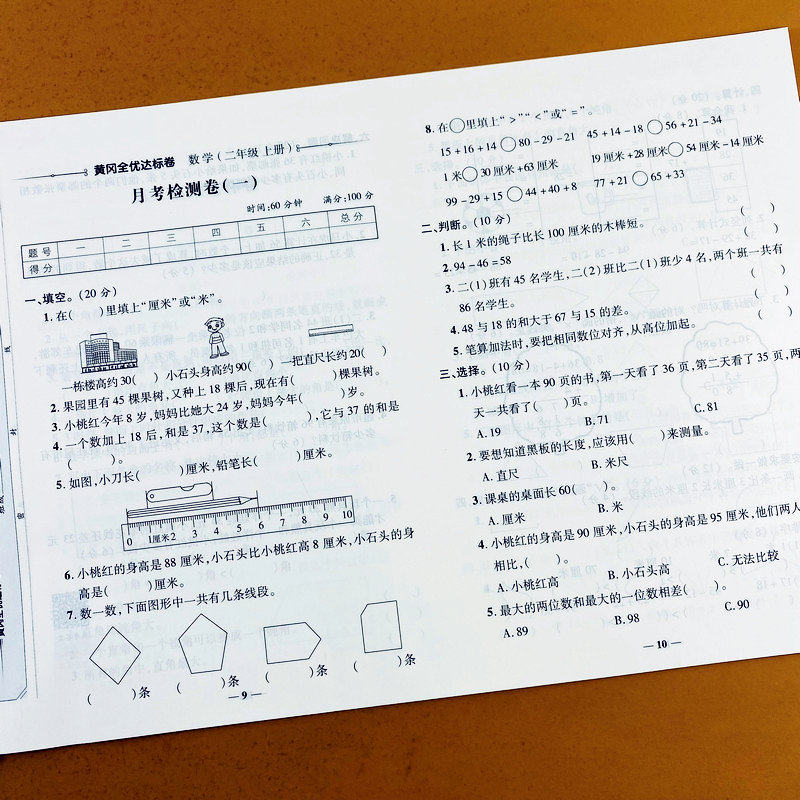 黄冈全优达标卷 数学(二年级 上册)
月考检测卷(一)
时间:60 分钟 满分:100 分
题号 一 二 三 四 五 六 总分
得分
一、填空。(20 分)
1. 在( )里填上“厘米”或“米”。
一栋楼高约 30( ) 小石头身高约 90( ) 一把直尺长约 20( )
2. 果园里有 45 棵果树,又种上 18 棵后,现在有( )棵果树。
3. 小桃红今年 8 岁,妈妈比她大 24 岁,妈妈今年( )岁。
4. 一个数加上 18 后,和是 37,这个数是( ),它与 37 的和是
( )。
5. 如图,小刀长( )厘米,铅笔长( )厘米。
0 1厘米 2 3 4 5 6 7 8 9 10
6. 小桃红的身高是 88 厘米,小石头比小桃红高 8 厘米,小石头的身
高是( )厘米。
7. 数一数,下面图形中一共有几条线段。
( )条 ( )条 ( )条 ( )条
— 9 —
8. 在○里填上“>”“<”或“=”。
15 + 16 + 14 ○ 80 - 29 - 21 45 + 14 - 18 ○ 56 + 21 - 34
1 米 ○ 30 厘米 + 63 厘米 19 厘米 + 28 厘米 ○ 54 厘米 - 14 厘米
99 - 29 + 15 ○ 44 + 40 + 8 77 + 21 ○ 65 + 33
二、判断。(10 分)
1. 长 1 米的绳子比长 100 厘米的木棒短。 ( )
2. 94 - 46 = 58 ( )
3. 二(1)班有 45 名学生,二(2)班比二(1)班少 4 名,两个班一共有
86 名学生。 ( )
4. 48 与 18 的和大于 67 与 15 的差。 ( )
5. 笔算加法时,要把相同数位对齐,从高位加起。 ( )
三、选择。(10 分)
1. 小桃红看一本 90 页的书,第一天看了 36 页,第二天看了 35 页,两
天一共看了( )页。
A. 19 B. 71 C. 81
2. 要想知道黑板的长度,应该用( )来测量。
A. 直尺 B. 米尺
3. 课桌的桌面长 60( )。
A. 厘米 B. 米
4. 小桃红的身高是 90 厘米,小石头的身高是 95 厘米,他们两人
相比,( )。
A. 小桃红高 B. 小石头高 C. 无法比较
5. 最大的两位数和最大的一位数相差( )。
A. 89 B. 98 C. 90
— 10 —